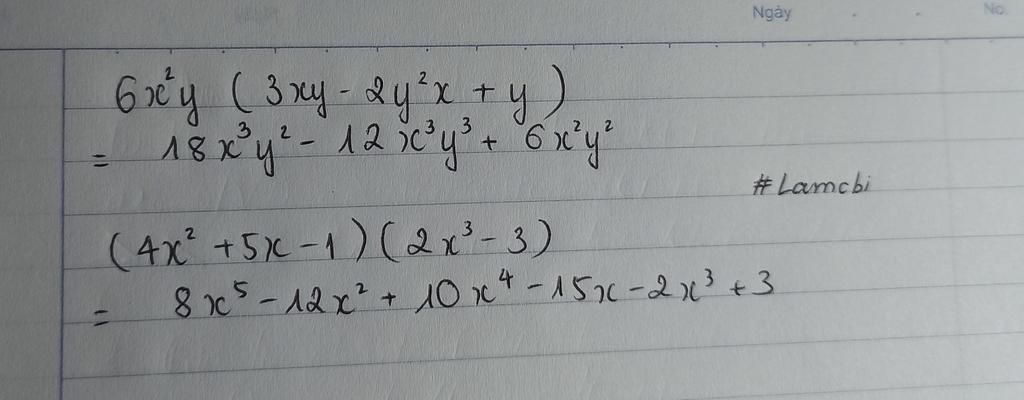 Ngày . . No.
6x²y (3xy - 2y²x + y)
= 18x³y² - 12x³y³ + 6x²y²
#Lamcbi
(4x² + 5x - 1)(2x³ - 3)
= 8x⁵ - 12x² + 10x⁴ - 15x - 2x³ + 3